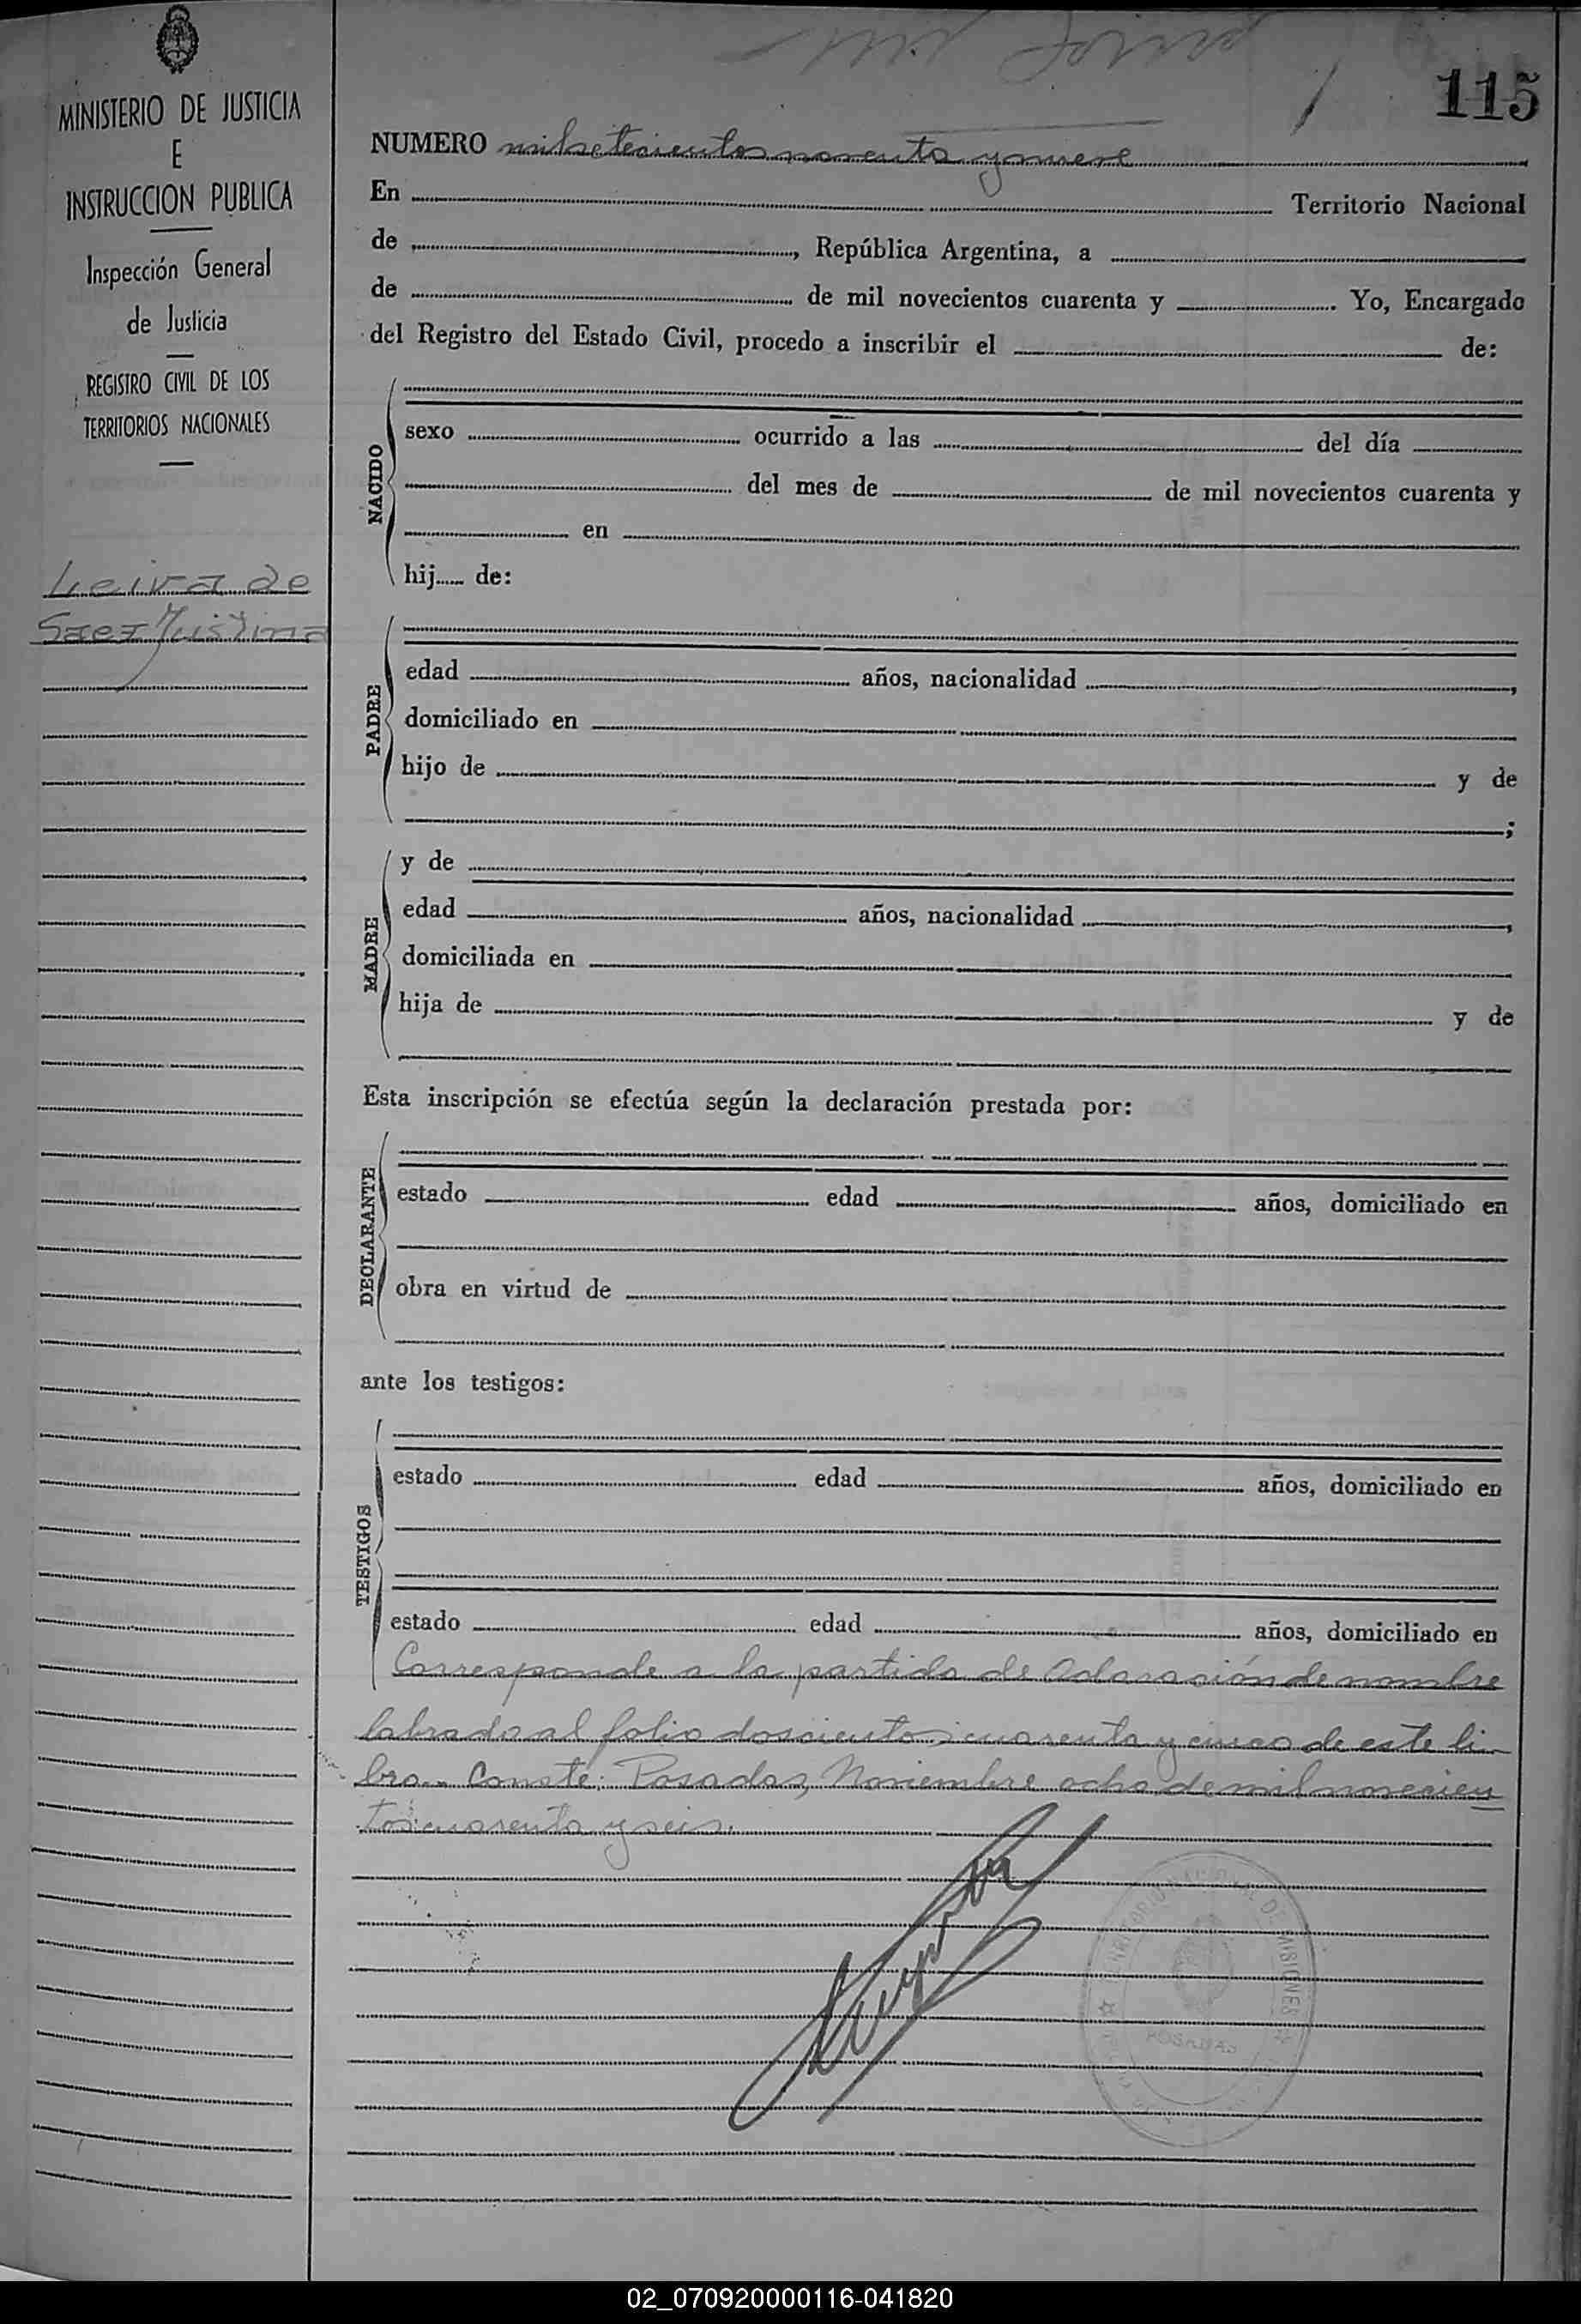 115
MINISTERIO DE JUSTICIA
E
INSTRUCCION PUBLICA
Inspección General
de Justicia
REGISTRO CIVIL DE LOS
TERRITORIOS NACIONALES
Leiva de
Saez Justina
NUMERO mil setecientos noventa y nueve
En Territorio Nacional
de , República Argentina, a
de de mil novecientos cuarenta y . Yo, Encargado
del Registro del Estado Civil, procedo a inscribir el de:
NACIDO
sexo ocurrido a las del día
del mes de de mil novecientos cuarenta y
en
hij de:
PADRE
edad años, nacionalidad ,
domiciliado en
hijo de y de
;
MADRE
y de
edad años, nacionalidad ,
domiciliada en
hija de y de
Esta inscripción se efectúa según la declaración prestada por:
DECLARANTE
estado edad años, domiciliado en
obra en virtud de
ante los testigos:
TESTIGOS
estado edad años, domiciliado en
estado edad años, domiciliado en
Corresponde a la partida de Aclaración de nombre
labrada al folio doscientos cuarenta y cinco de este li-
bro.- Conste: Posadas, Noviembre ocho de mil novecien
tos cuarenta y seis.
TERRITORIO NACIONAL DE MISIONES
POSADAS
02_070920000116-041820